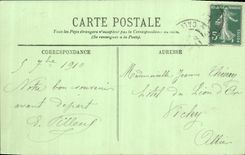 CARTE POSTALE
Tous les pays étrangers n'acceptent pas la Correspondance au
(Se renseigner à la Poste)
CORRESPONDANCE
ADRESSE
5 7bre 1910
Notre bon souvenir
avant départ
Mademoiselle Jeanne
Hôtel du Lion d'Or
Vichy
Allier